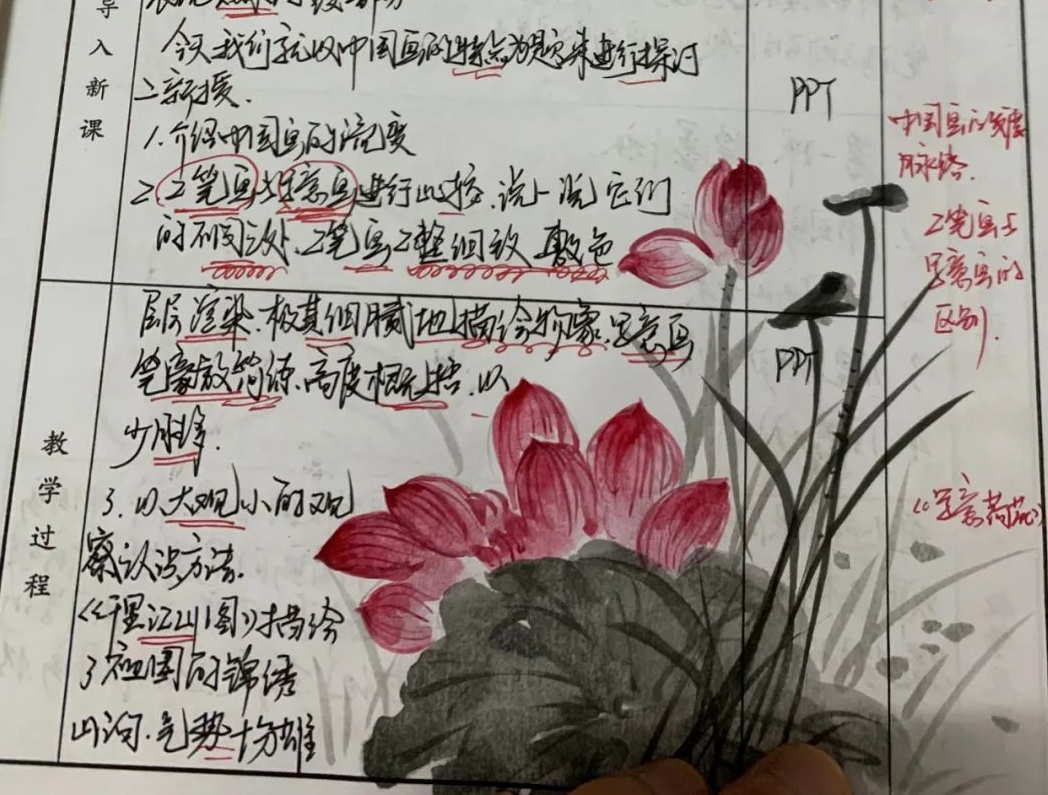 导入新课
今天我们就以中国画的特点为题来进行探讨
二新授.
PPT
1.介绍中国画的流变
2.工笔画与写意画进行比较.说一说它们
的不同之处.工笔画工整细致 敷色
中国画的发展
脉络.
工笔画与
写意画的
区别.
教学过程
层层渲染.极其细腻地描绘物象.写意画
笔豪放简练.高度概括.以
少胜多.
PPT
3.以大观小的观
察认识方法.
《写意荷花》
《千里江山图》描绘
了祖国的锦绣
山河.气势十分雄